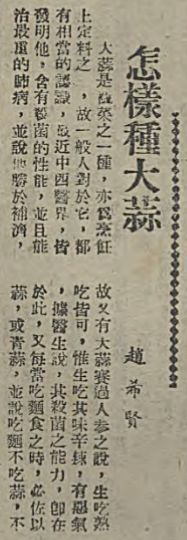 怎樣種大蒜
趙希賢
大蒜是蔬菜之一種，亦爲烹飪
上定料之一，故一般人對於它，都
有相當的認識，最近中西醫界，皆
發明他，含有殺菌的性能，並且能
治最重的肺病，並說他勝於補濟，
故又有大蒜賽過人參之說，生吃熟
吃皆可，惟生吃其味辛辣，有惡氣
，據醫生說，其殺菌之能力，卽在
於此，又每當吃麵食之時，必佐以
蒜，或青蒜，並說吃麵不吃蒜，不